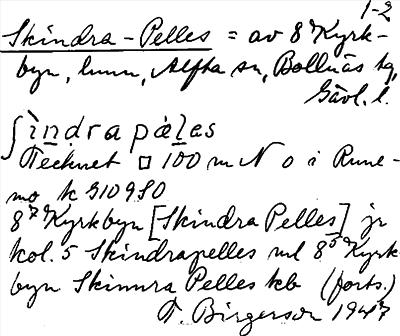 1-2
Skindra-Pelles = av 8⁷ Kyrk-
byn, hmn, Alfta sn, Bollnäs tg,
Gävl. l.
ʃìndrapæ̀les
Tecknet □ 100 m N o i Rune-
mo k 310980
8⁷ Kyrkbyn [Skindra Pelles] jr
kol. 5 Skindrapelles vid 8⁵ Kyrk-
byn Skinnra Pelles kb (forts.)
T. Birgerson 1947